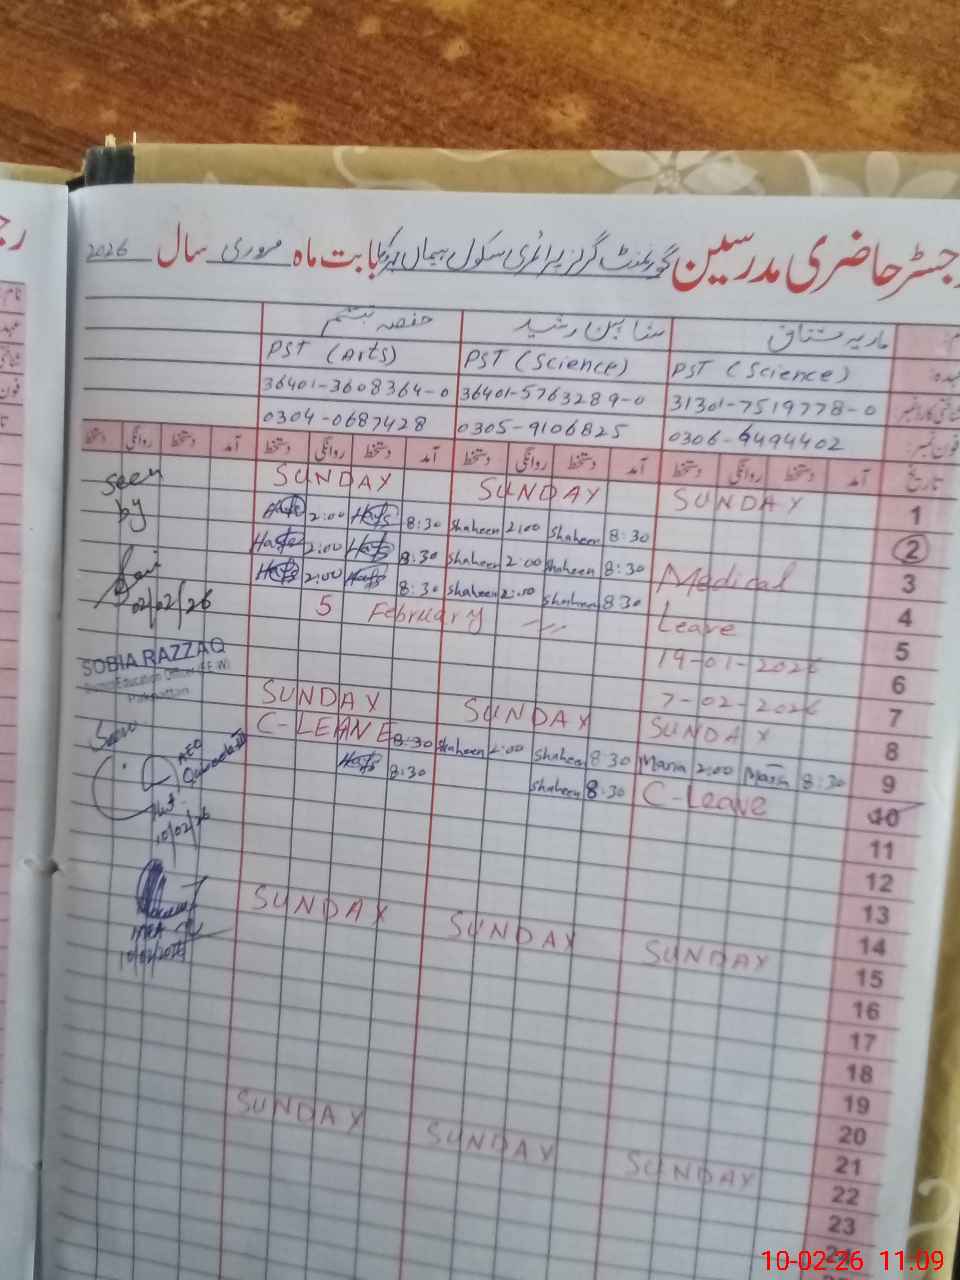 رجسٹر حاضری مدرسین گورنمنٹ گرلز پرائمری سکول بابت ماہ فروری سال 2026
ماریہ مشتاق شاہین رشید حفصہ تبسم
عہدہ PST (Science) PST (Science) PST (Arts)
31301-7519778-0 36401-5763289-0 36401-3608364-0
فون نمبر 0306-6494402 0305-9106825 0304-0687428
تاریخ آمد دستخط روانگی دستخط آمد دستخط روانگی دستخط آمد دستخط روانگی دستخط آمد دستخط روانگی دستخط
1 SUNDAY SUNDAY SUNDAY
2 8:30 Shaheen 2:00 Shaheen 8:30 Hafs 2:00
3 Medical 8:30 Shaheen 2:00 Shaheen 8:30 Hafs 2:00 Hafs
4 Leave 8:30 Shaheen 2:00 Shaheen 8:30 Hafs 2:00 Hafs
5 19-01-2026 5 February
6 7-02-2026
7
8 SUNDAY SUNDAY SUNDAY
9 8:30 Maria 2:00 Maria 8:30 Shaheen 2:00 Shaheen 8:30 C-LEAVE
10 C-Leave 8:30 Shaheen 8:30 Hafs
11
12
13
14
15 SUNDAY SUNDAY SUNDAY
16
17
18
19
20
21
22 SUNDAY SUNDAY SUNDAY
23
24
Seen
by
02/02/26
SOBIA RAZZAQ
Seen
AEO
10/02/26
MEA
10/02/2026
10-02-26 11:09